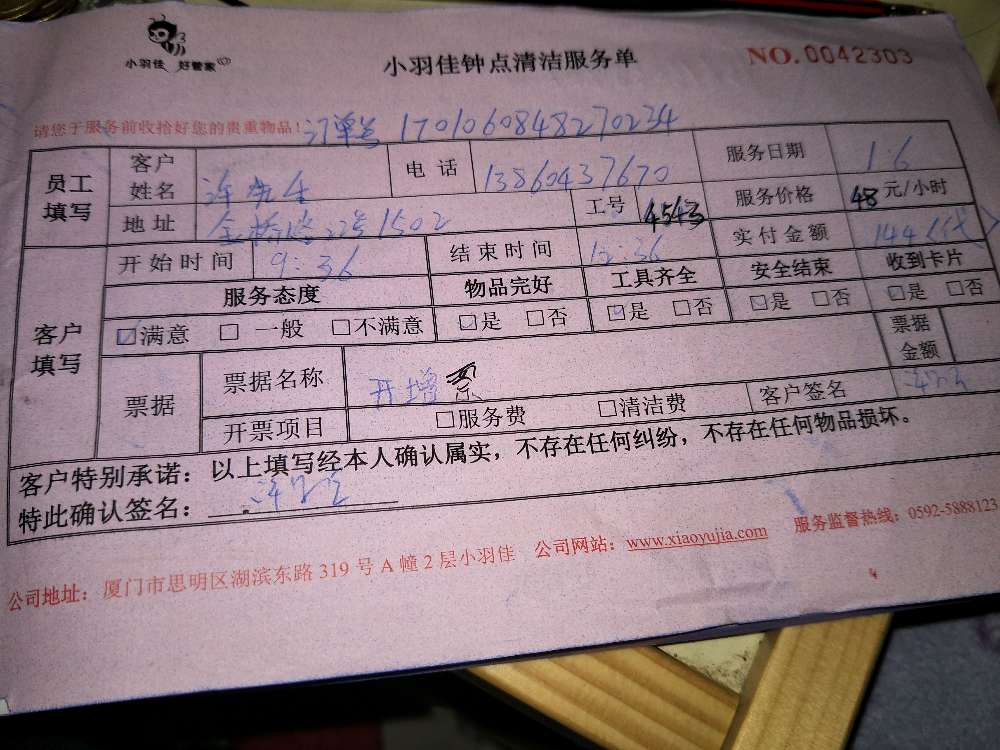 小羽佳 好管家
小羽佳钟点清洁服务单
NO. 0042303
请您于服务前收拾好您的贵重物品! 订单号 1701060848270234
员工填写 客户姓名 电话 13860437670 服务日期 1.6
地址 金桥路22号1502 工号 4543 服务价格 48元/小时
客户填写 开始时间 9:36 结束时间 12:36 实付金额 144
服务态度 物品完好 工具齐全 安全结束 收到卡片
☑满意 □一般 □不满意 ☑是 □否 ☑是 □否 ☑是 □否 ☑是 □否
票据 票据名称 开增票 票据金额
开票项目 □服务费 □清洁费 客户签名
客户特别承诺:以上填写经本人确认属实,不存在任何纠纷,不存在任何物品损坏。
特此确认签名:
公司地址:厦门市思明区湖滨东路319号A幢2层小羽佳 公司网站:www.xiaoyujia.com 服务监督热线:0592-5888123